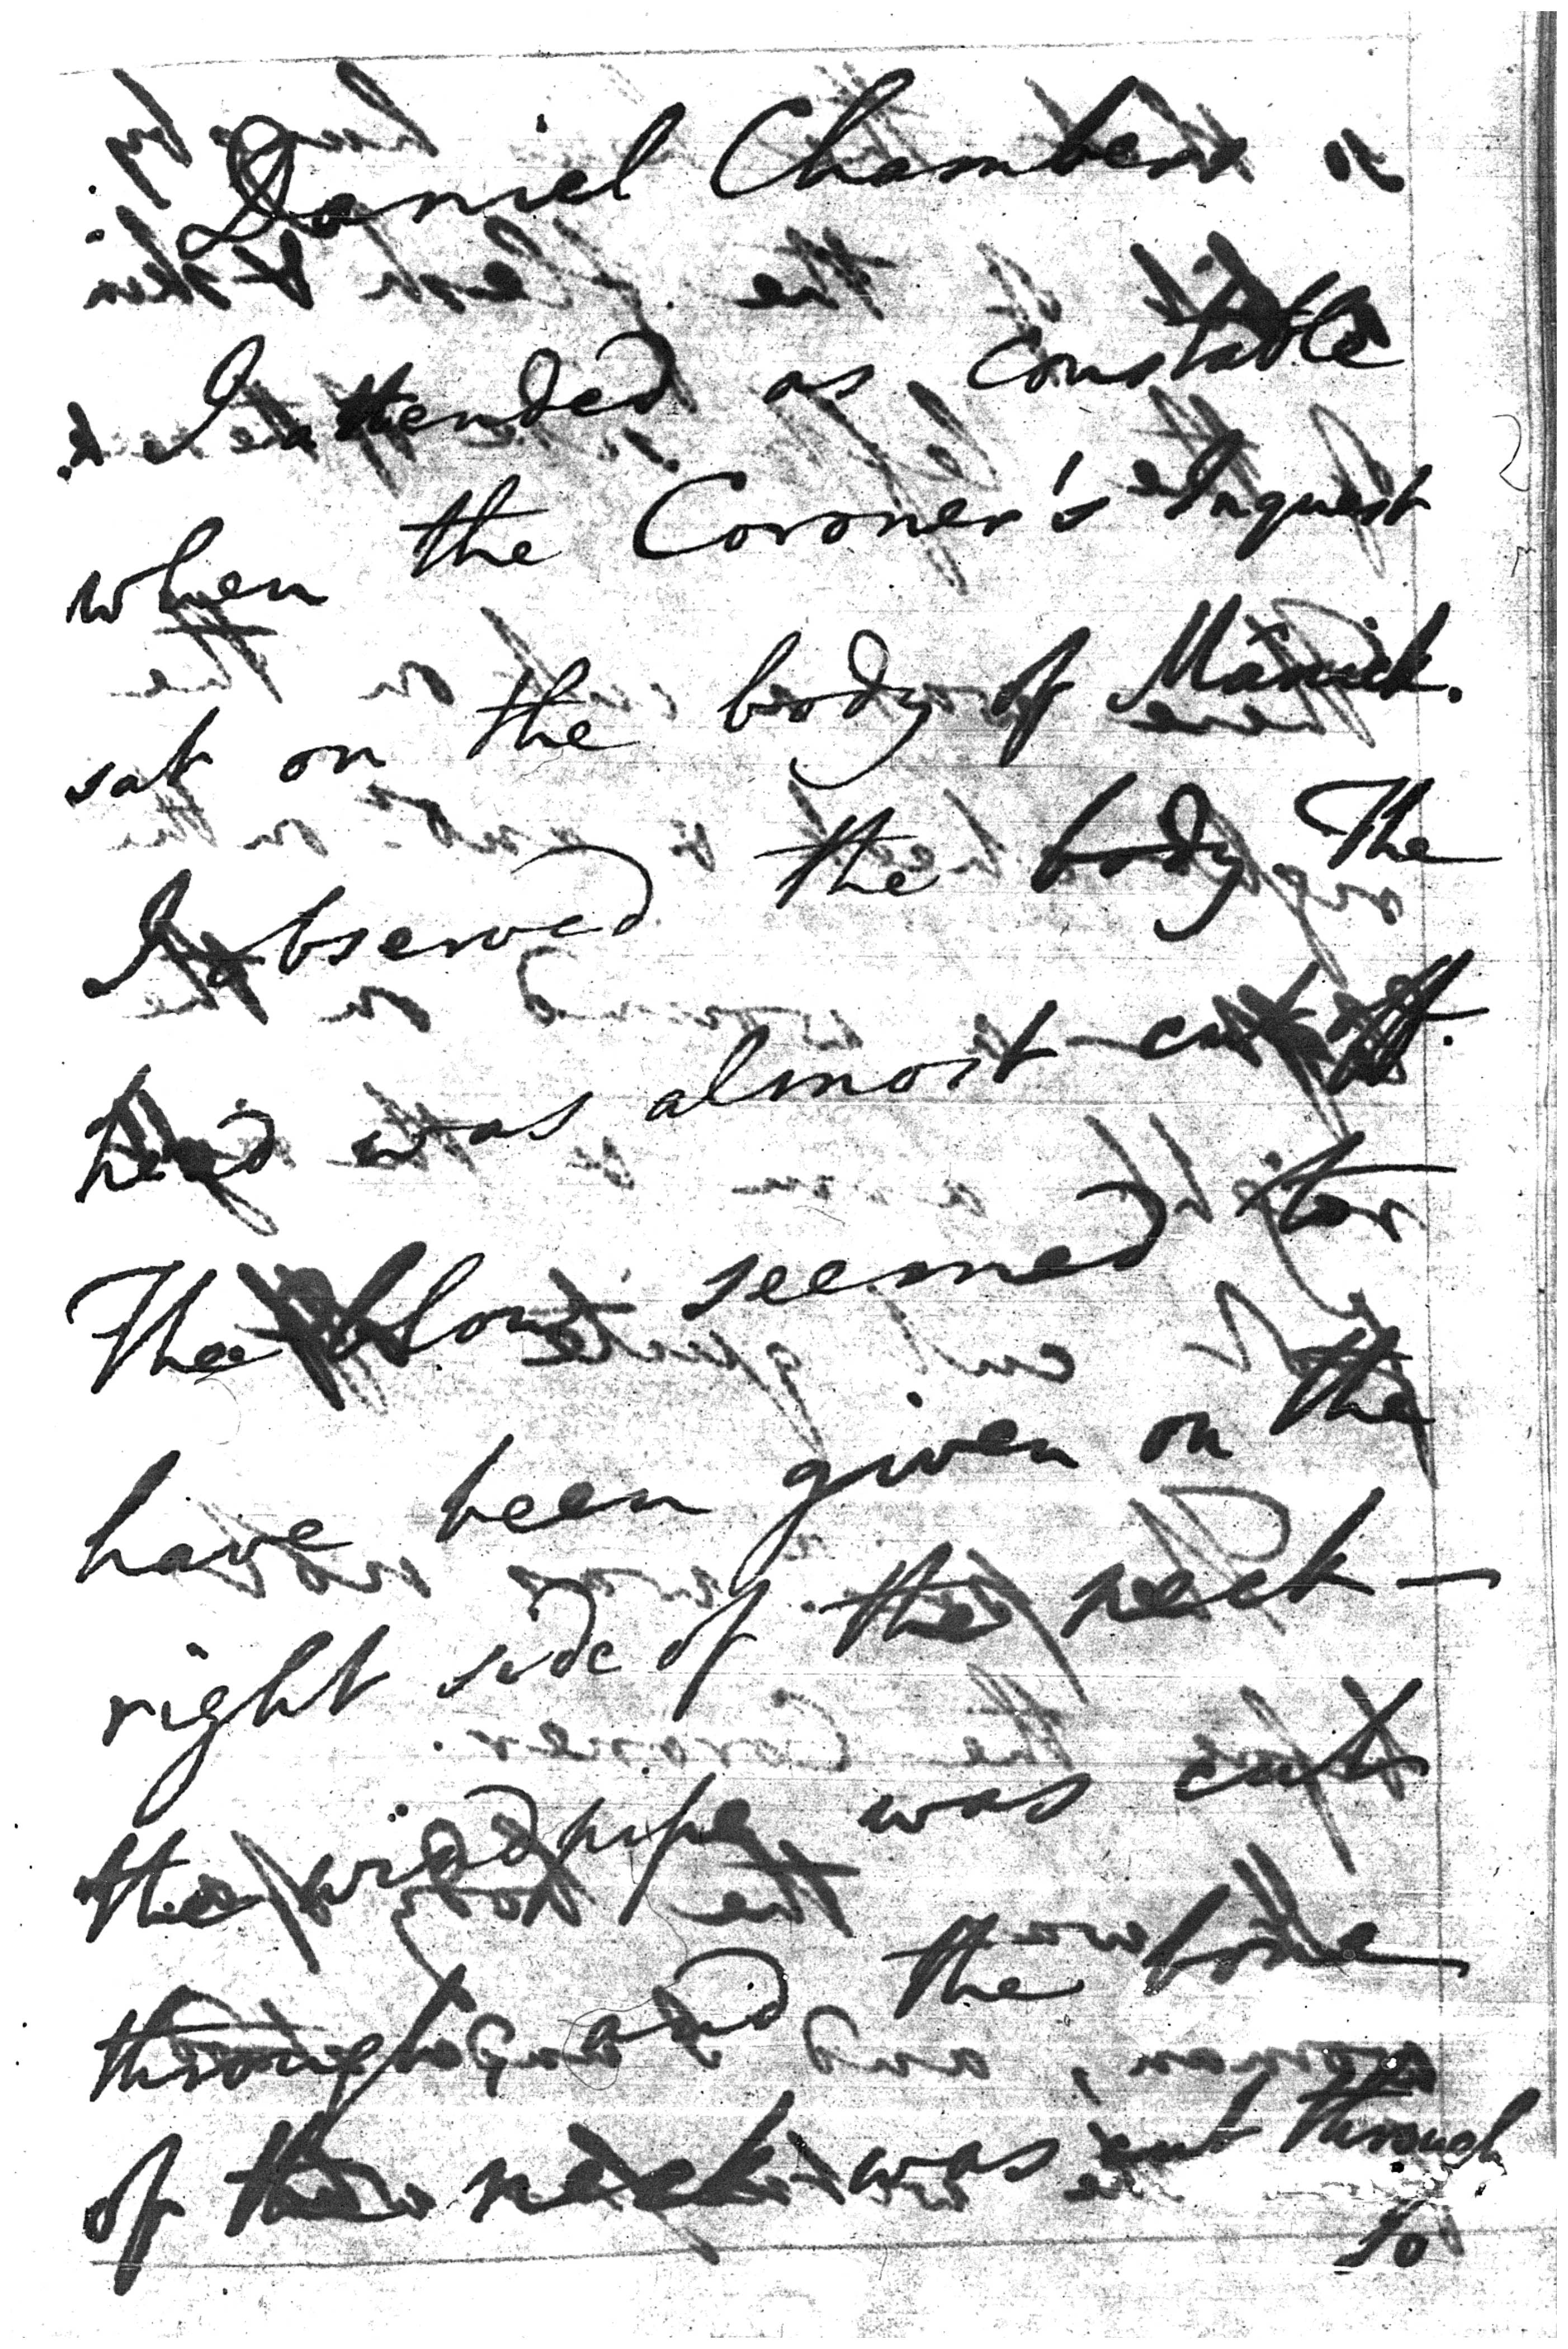 Daniel Chambers
I attended as Constable
when the Coroner's Inquest
sat on the body of Manick.
I observed the body The
head was almost cut off.
The blow seemed to
have been given on the
right side of the neck —
the windpipe was cut
through and the bone
of the neck was cut through
so